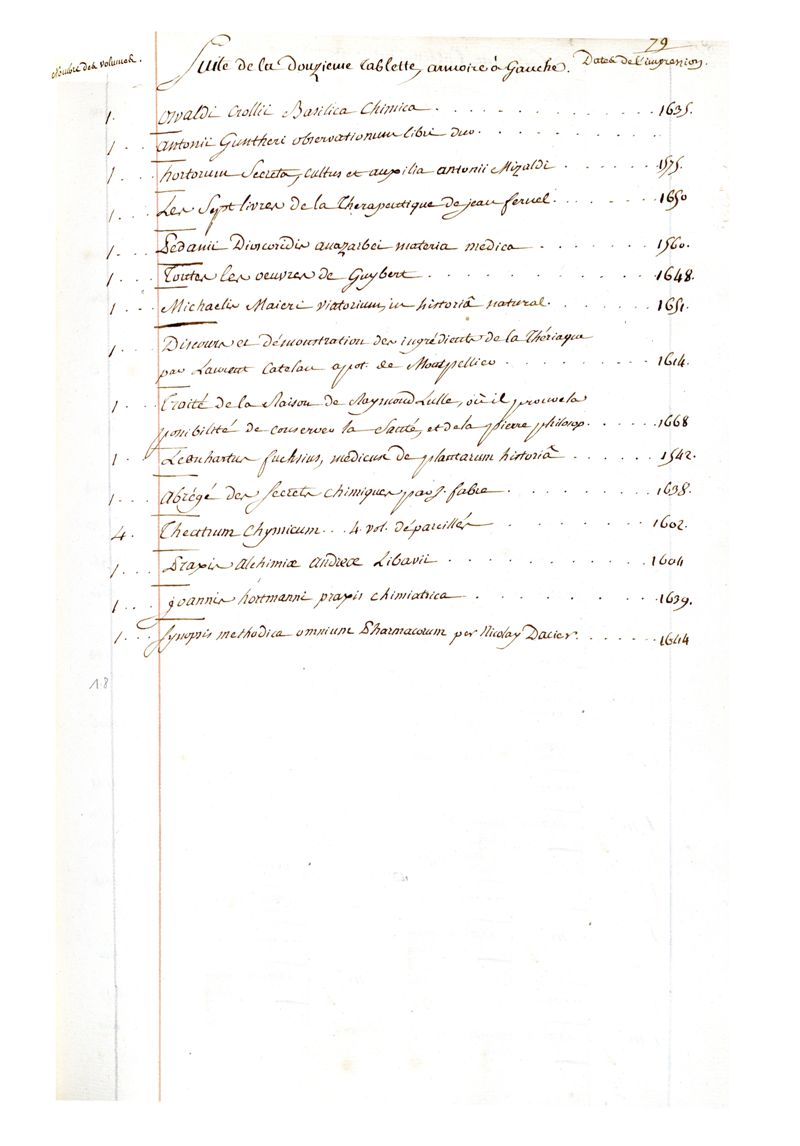 79
Nombre des volumes. Suite de la Douzieme tablette, armoire à Gauche. Dates de l'impression.
1. oswaldi Crollii Basilica Chimica . . . . . . . . . . 1635.
1 . . . antonii Guntheri observationum libri duo. . . . . . . . .
1 . . . hortorum Secreta, cultus et auxilia antonii Mizaldi . . . . . . 1575.
1 . . . Les Sept livres de la Therapeutique de jean fernel . . . . . . 1650
1 . . . Pedanii Dioscoridis anazarbei materia medica . . . . . . 1560.
1 . . . Toutes les oeuvres de Guybert . . . . . . . . . . 1648.
1 . . . Michaelis Maieri viatorium, in historiâ natural. . . . . . 1651.
1 . . Discours et démonstration des ingrédients de la Thériaque
par Laurent Catelan apot. de Montpellier . . . . . . . 1614.
1 . . Traité de la Raison de Raymond Lulle, où il prouve la
possibilité de conserver la Santé, et de la pierre philosop. . . . . 1668
1 . . Leonhartus fuchsius, médicus de plantarum historiâ . . . . . 1542.
1 . . Abrégé des secrets chimiques par J. fabre . . . . . . . 1638.
4. Theatrum Chymicum . . . 4. vol. dépareillés . . . . . . 1602.
1 . . . Praxis alchimiæ andreæ Libavii . . . . . . . . . 1604
1 . . . joannis hortmanni praxis chimiatrica . . . . . . . . 1639.
1 . . Synopsis methodica omnium Pharmacorum per Nicolay Dacier . . . . . . 1644
18